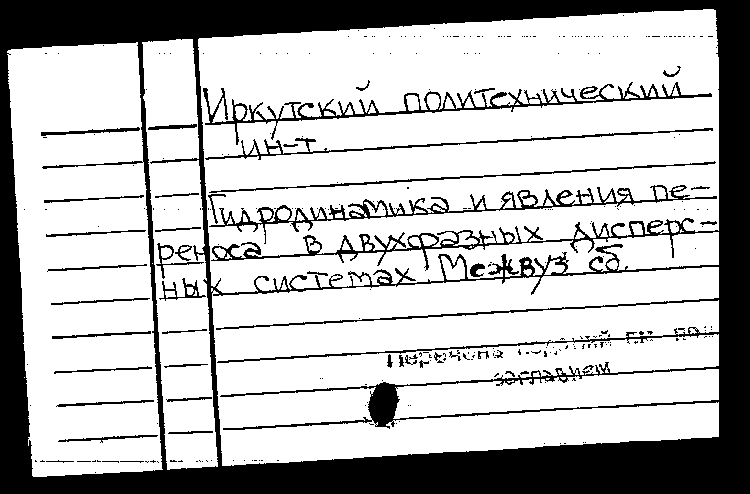 Иркутский политехнический
ин-т.
Гидродинамика и явления пе-
реноса в двухфазных дисперс-
ных системах. Межвуз. сб.
изданий см. под
заглавием